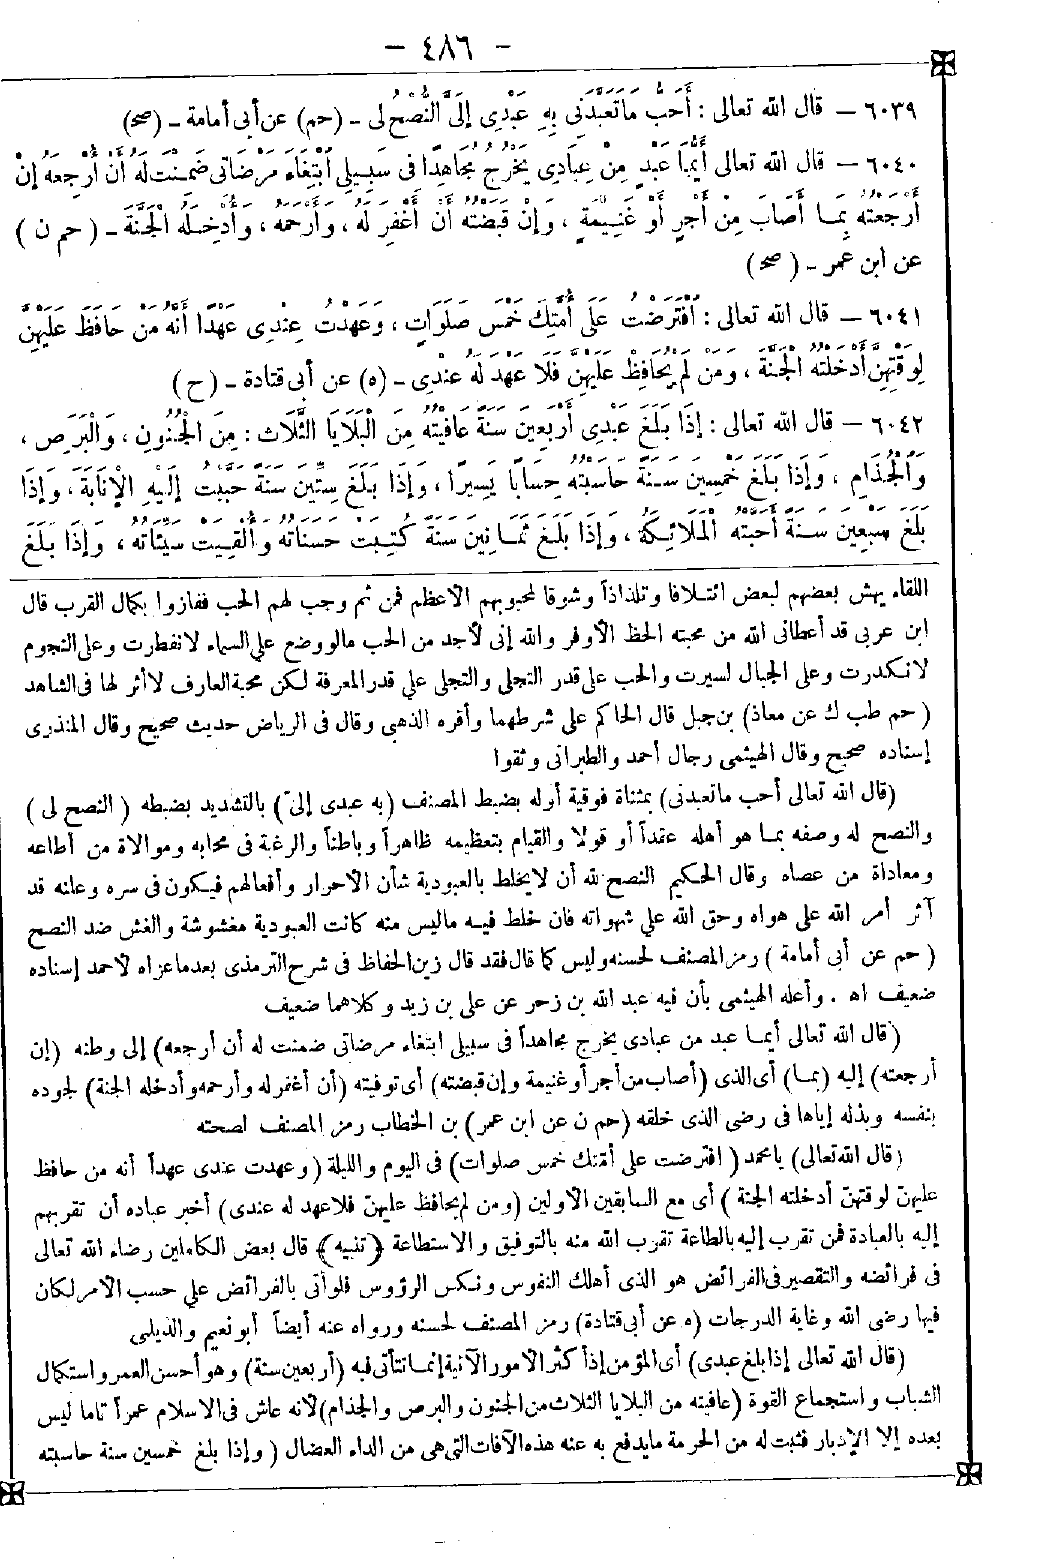 - ٤٨٦ -
٦٠٣٩ - قال الله تعالى : أَحَبُّ مَا تَعَبَّدَنِي بِهِ عَبْدِي إِلَيَّ النُّصْحُ لِي - (حم) عن أبي أمامة - (صح)
٦٠٤٠ - قال الله تعالى أَيُّمَا عَبْدٍ مِنْ عِبَادِي يَخْرُجُ مُجَاهِدًا فِي سَبِيلِي ابْتِغَاءَ مَرْضَاتِي ضَمِنْتُ لَهُ أَنْ أُرْجِعَهُ إِنْ
أَرْجَعْتُهُ بِمَا أَصَابَ مِنْ أَجْرٍ أَوْ غَنِيمَةٍ ، وَإِنْ قَبَضْتُهُ أَنْ أَغْفِرَ لَهُ ، وَأَرْحَمَهُ ، وَأُدْخِلَهُ الْجَنَّةَ - ( حم ن )
عن ابن عمر - ( صح )
٦٠٤١ - قال الله تعالى : افْتَرَضْتُ عَلَى أُمَّتِكَ خَمْسَ صَلَوَاتٍ ، وَعَهِدْتُ عِنْدِي عَهْدًا أَنَّهُ مَنْ حَافَظَ عَلَيْهِنَّ
لِوَقْتِهِنَّ أَدْخَلْتُهُ الْجَنَّةَ ، وَمَنْ لَمْ يُحَافِظْ عَلَيْهِنَّ فَلَا عَهْدَ لَهُ عِنْدِي - (ه) عن أبي قتادة - (ح)
٦٠٤٢ - قال الله تعالى : إِذَا بَلَغَ عَبْدِي أَرْبَعِينَ سَنَةً عَافَيْتُهُ مِنَ الْبَلَايَا الثَّلَاثِ : مِنَ الْجُنُونِ ، وَالْبَرَصِ ،
وَالْجُذَامِ ، وَإِذَا بَلَغَ خَمْسِينَ سَنَةً حَاسَبْتُهُ حِسَابًا يَسِيرًا ، وَإِذَا بَلَغَ سِتِّينَ سَنَةً حَبَّبْتُ إِلَيْهِ الْإِنَابَةَ ، وَإِذَا
بَلَغَ سَبْعِينَ سَنَةً أَحَبَّتْهُ الْمَلَائِكَةُ ، وَإِذَا بَلَغَ ثَمَانِينَ سَنَةً كُتِبَتْ حَسَنَاتُهُ وَأُلْقِيَتْ سَيِّئَاتُهُ ، وَإِذَا بَلَغَ
اللقاء يهش بعضهم لبعض ائتلافا وتلذاذاً وشوقا لمحبوبهم الاعظم فمن ثم وجب لهم الحب ففازوا بكمال القرب قال
ابن عربي قد أعطاني الله من محبته الحظ الأوفر والله إني لأجد من الحب مالو وضع على السماء لانفطرت وعلى النجوم
لانكدرت وعلى الجبال لسيرت والحب على قدر التجلى والتجلى على قدر المعرفة لكن محبة العارف لا أثر لها في الشاهد
( حم طب ك عن معاذ) بن جبل قال الحاكم على شرطهما وأقره الذهبي وقال في الرياض حديث صحيح وقال المنذرى
إسناده صحيح وقال الهيثمى رجال أحمد والطبراني وثقوا
(قال الله تعالى أحب ما تعبدني) بمثناة فوقية أوله بضبط المصنف (به عبدى إلىّ) بالتشديد بضبطه ( النصح لى )
والنصح له وصفه بما هو أهله عقداً أو قولا والقيام بتعظيمه ظاهراً وباطناً والرغبة في محابه وموالاة من أطاعه
ومعاداة من عصاه وقال الحكيم النصح لله أن لا يخلط بالعبودية شأن الاحرار وأفعالهم فيكون في سره وعلنه قد
آثر أمر الله على هواه وحق الله على شهواته فان خلط فيه ماليس منه كانت العبودية مغشوشة والغش ضد النصح
( حم عن أبي أمامة ) رمز المصنف لحسنه وليس كما قال فقد قال زين الحفاظ في شرح الترمذى بعد ما عزاه لاحمد إسناده
ضعيف اه . وأعله الهيثمى بأن فيه عبد الله بن زحر عن على بن زيد وكلاهما ضعيف
(قال الله تعالى أيما عبد من عبادى يخرج مجاهداً في سبيلى ابتغاء مرضاتى ضمنت له أن أرجعه) إلى وطنه (إن
أرجعته) إليه (بما) أى الذى (أصاب من أجر أو غنيمة وإن قبضته) أى توفيته (أن أغفر له وأرحمه وأدخله الجنة) لجوده
بنفسه وبذله إياها في رضى الذى خلقه (حم ن عن ابن عمر) بن الخطاب رمز المصنف لصحته
(قال الله تعالى) يا محمد ( افترضت على أمتك خمس صلوات) في اليوم والليلة (وعهدت عندى عهداً أنه من حافظ
عليهنّ لوقتهنّ أدخلته الجنة ) أى مع السابقين الأولين (ومن لم يحافظ عليهنّ فلا عهد له عندى) أخبر عباده أن تقربهم
إليه بالعبادة فمن تقرب إليه بالطاعة تقرب الله منه بالتوفيق والاستطاعة (تنبيه) قال بعض الكاملين رضاء الله تعالى
في فرائضه والتقصير في الفرائض هو الذى أهلك النفوس ونكس الرؤوس فلو أتى بالفرائض على حسب الأمر لكان
فيها رضى الله وغاية الدرجات (ه عن أبي قتادة) رمز المصنف لحسنه ورواه عنه أيضاً أبو نعيم والديلمى
(قال الله تعالى إذا بلغ عبدى) أى المؤمن إذا كثر الامور الآتية إنما تتأتى فيه (أربعين سنة) وهو أحسن العمر واستكمال
الشباب واستجماع القوة (عافيته من البلايا الثلاث من الجنون والبرص والجذام) لأنه عاش في الاسلام عمراً تاما ليس
بعده إلا الإدبار فثبت له من الحرمة ما يدفع به عنه هذه الآفات التى هى من الداء العضال ( وإذا بلغ خمسين سنة حاسبته